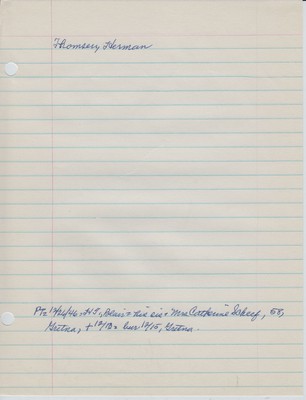 Thomsen, Herman
PTz 12/26/46. H5., Blair = his sis = Mrs Catherine Scheef, 58,
Gretna, + 12/13 = bur 12/15, Gretna.